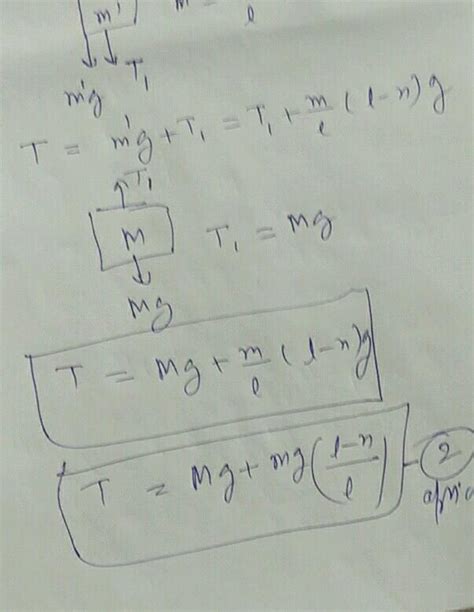 m' m
l
m'g T₁
T = m'g + T₁ = T₁ + m/l (l-n)g
T₁
M T₁ = Mg
Mg
T = Mg + m/l (l-n)g
T = Mg + mg((l-n)/l) - 2